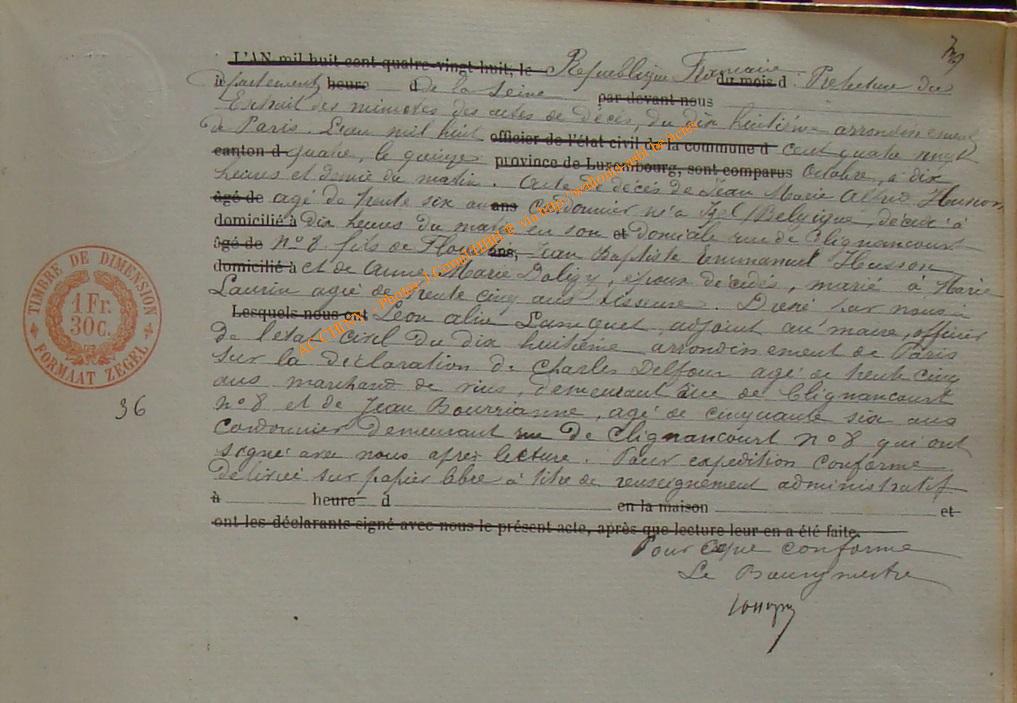 L'AN mil huit cent quatre-vingt huit, le République Française du mois d Préfecture du
à département heure d de la Seine par devant nous
Extrait des minutes des actes de décès, du dix huitième arrondissement
de Paris. L'an mil huit officier de l'état civil de la commune d cent quatre vingt
canton d quatre, le quinze province de Luxembourg, sont comparus Octobre, à dix
heures et demie du matin. Acte de décès de Jean Marie Husson,
âgé de agé de trente six ans ans Cordonnier né à Belgique, décédé à
domicilié à dix heures du matin en son et domicile rue de Clignancourt
âgé de N° 8 fils de ans, Jean Baptiste Emmanuel Husson
domicilié à et de Anne Marie époux décédés, marié à Marie
Laurin agée de trente cinq ans Dressé par nous
Lesquels nous ont Léon adjoint au maire, officier
de l'état civil du dix huitième arrondissement de Paris
sur la déclaration de Charles Delfour agé de trente cinq
ans marchand de vins, demeurant rue de Clignancourt
n° 8 et de Jean agé de cinquante six ans
Cordonnier demeurant rue de Clignancourt n° 8 qui ont
signé avec nous après lecture. Pour expédition conforme
délivrée sur papier libre à titre de renseignement administratif
à heure d en la maison et
ont les déclarants signé avec nous le présent acte, après que lecture leur en a été faite.
Pour copie conforme
Le Bourgmestre
TIMBRE DE DIMENSION
1 Fr.
30c.
FORMAAT ZEGEL
36